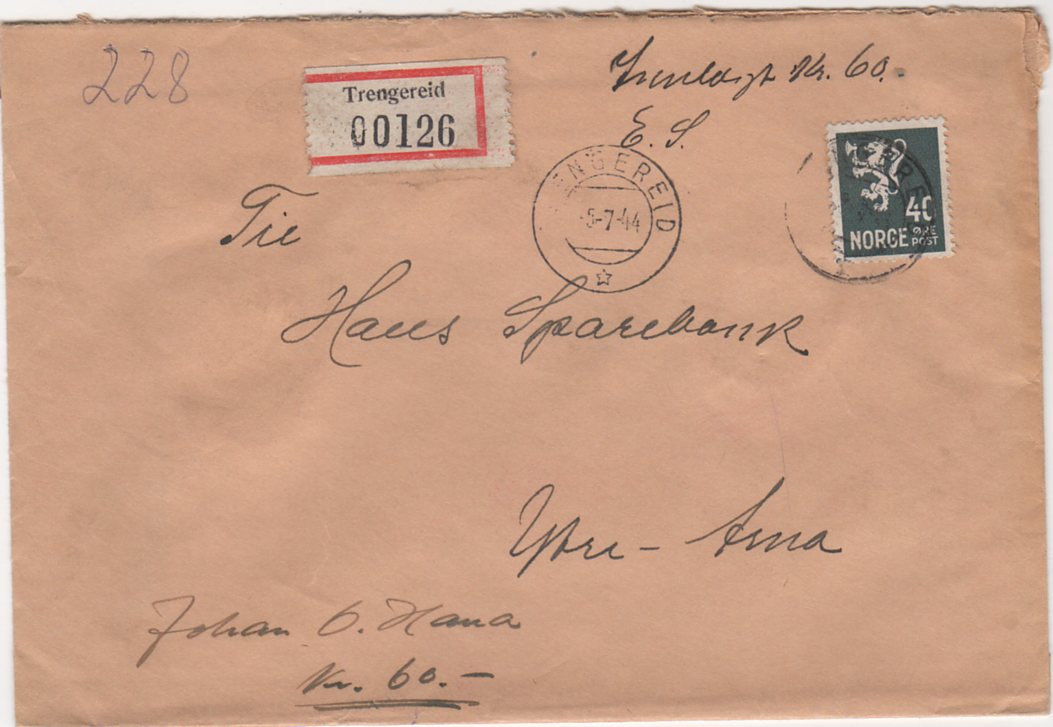 228
Trengereid
00126
Innlagt Kr. 60.-
E. S.
TRENGEREID
-5-7-44
40
NORGE ØRE
POST
Til
Haus Sparebank
Ytre - Arna
Johan O. Hana
Kr. 60.-